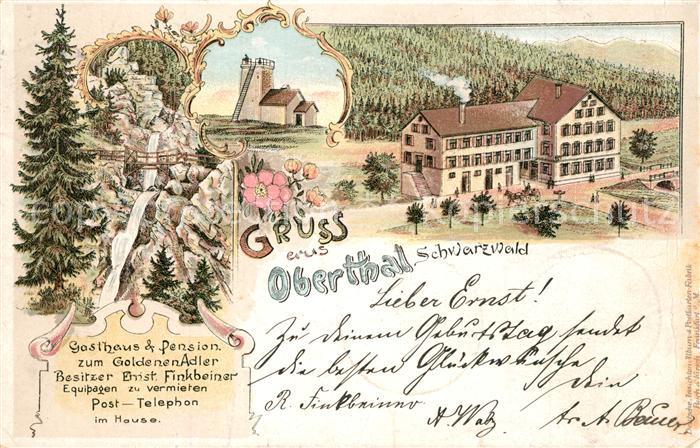 GRUSS
aus
Oberthal Schwarzwald
Gasthaus & Pension
zum Goldenen Adler
Besitzer Ernst. Finkbeiner
Equipagen zu vermieten
Post — Telephon
im Hause.
Lieber Ernst!
Zu deinem Geburtstag sendet
die besten Glückwünsche
dein
R. Finkbeiner
A. Walz
A. Bauer